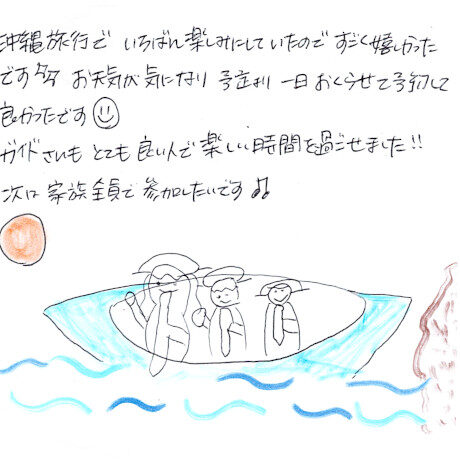 沖縄旅行で いちばん楽しみにしていたので すごく嬉しかった
です♪♪ お天気が気になり 予定より 一日 おくらせて予約して
良かったです☺
ガイドさんも とても 良い人で 楽しい時間を過ごせました!!
次は 家族全員で 参加したいです♪